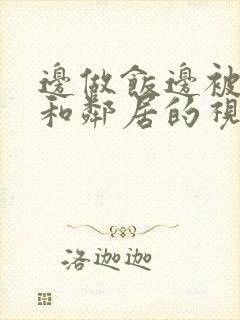 邊做飯邊被
和鄰居的視
洛迦迦